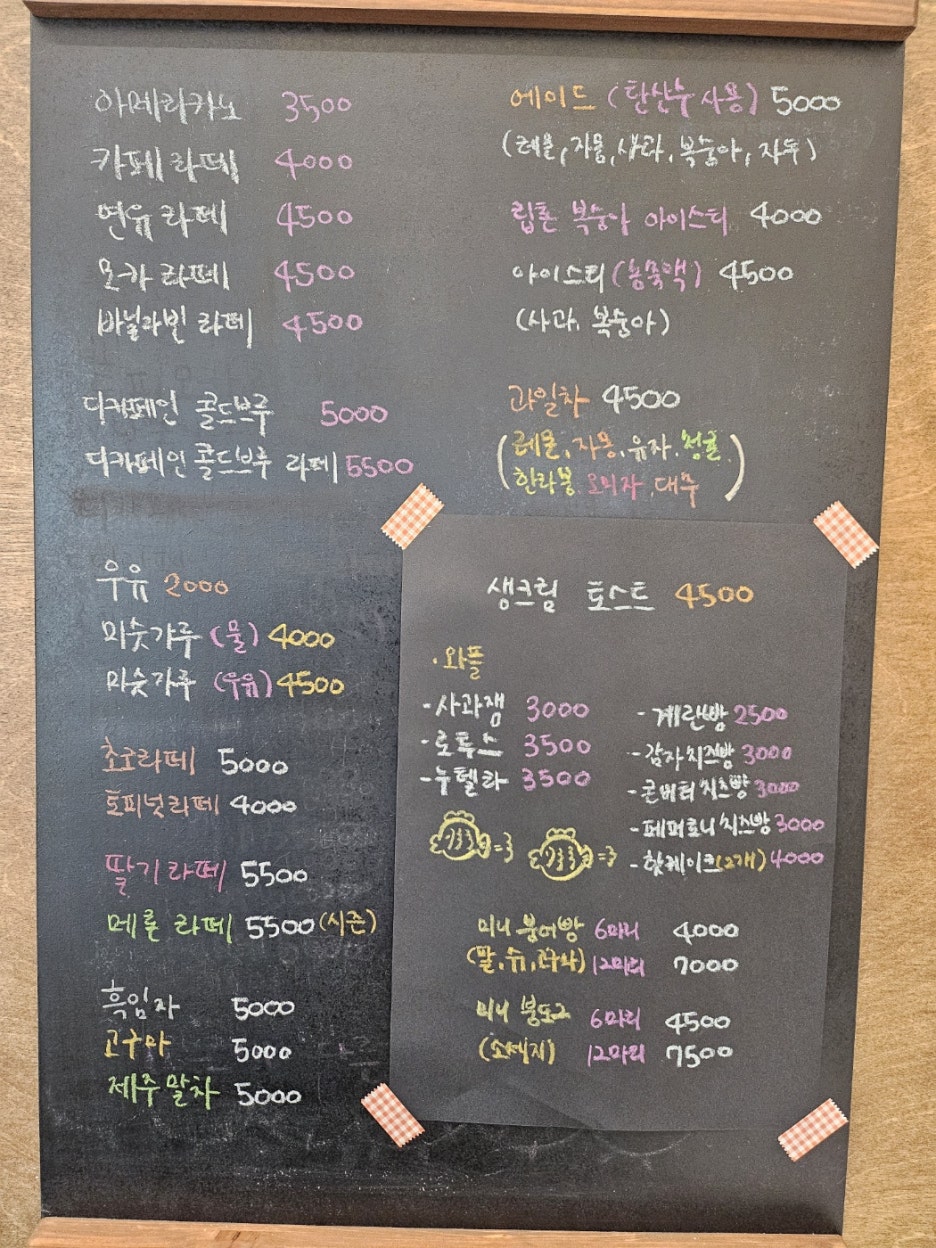 아메리카노 3500
카페라떼 4000
연유라떼 4500
모카라떼 4500
바닐라빈 라떼 4500
디카페인 콜드브루 5000
디카페인 콜드브루 라떼 5500
우유 2000
미숫가루 (물) 4000
미숫가루 (우유) 4500
초코라떼 5000
토피넛라떼 4000
딸기라떼 5500
메론 라떼 5500 (시즌)
흑임자 5000
고구마 5000
제주말차 5000
에이드 (탄산수 사용) 5000
(레몬, 자몽, 사과, 복숭아, 자두)
립톤 복숭아 아이스티 4000
아이스티 (농축액) 4500
(사과, 복숭아)
과일차 4500
(레몬, 자몽, 유자, 청귤,
한라봉 오미자, 대추)
생크림 토스트 4500
· 와플
- 사과잼 3000
- 로투스 3500
- 누텔라 3500
- 계란빵 2500
- 감자치즈빵 3000
- 콘버터치즈빵 3000
- 페퍼로니치즈빵 3000
- 핫케이크(2개) 4000
미니 붕어빵 6마리 4000
(팥, 슈, 고구마) 12마리 7000
미니 붕도그 6마리 4500
(소세지) 12마리 7500